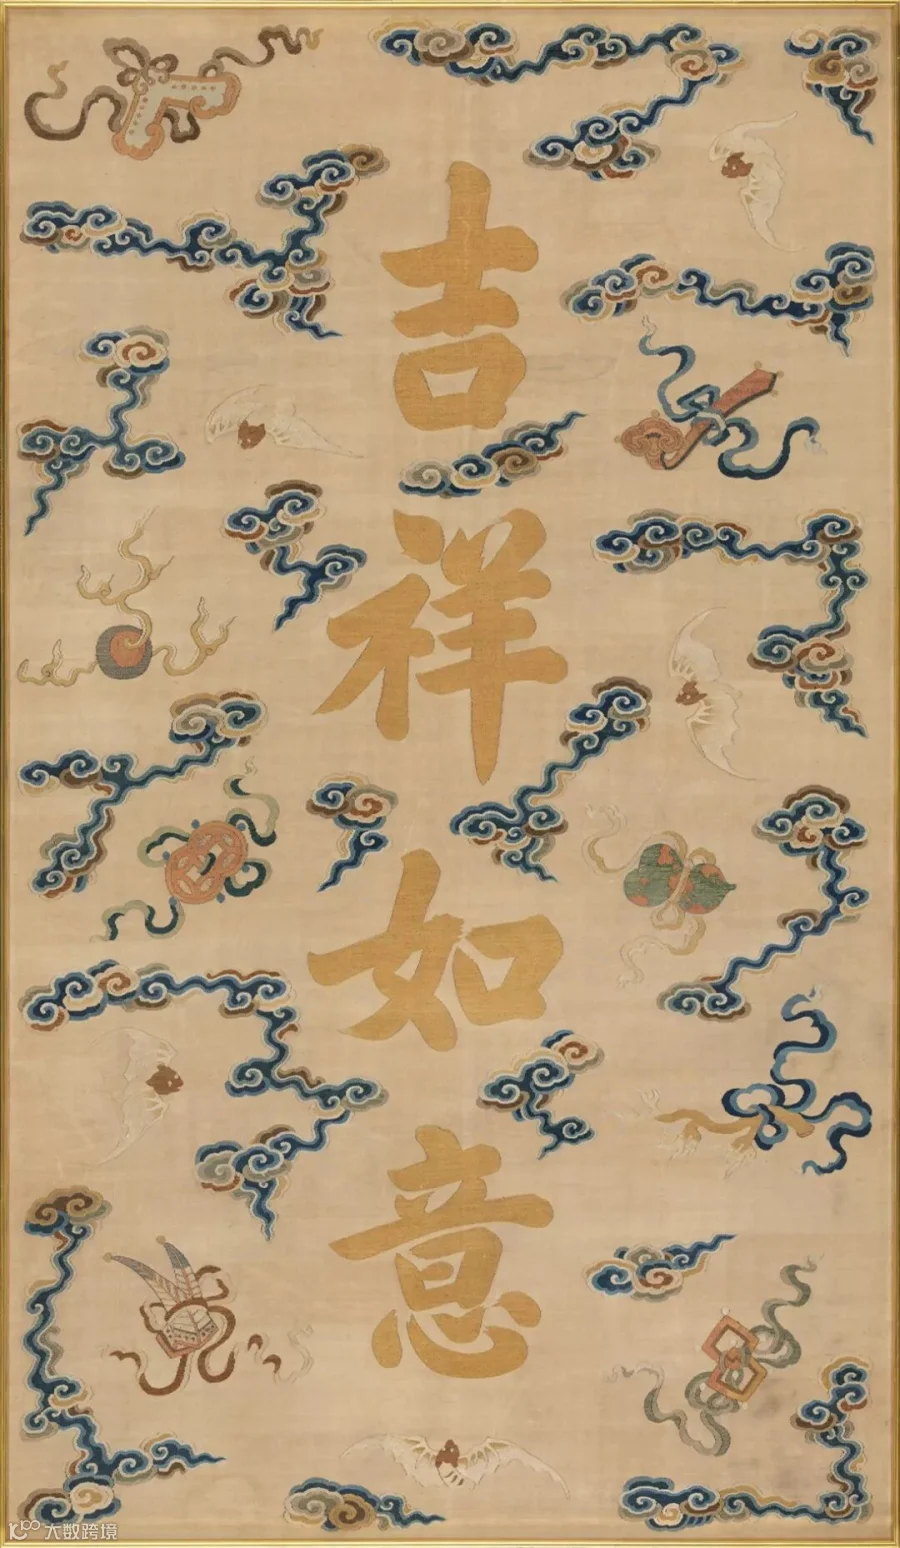 吉祥如意
大数跨境